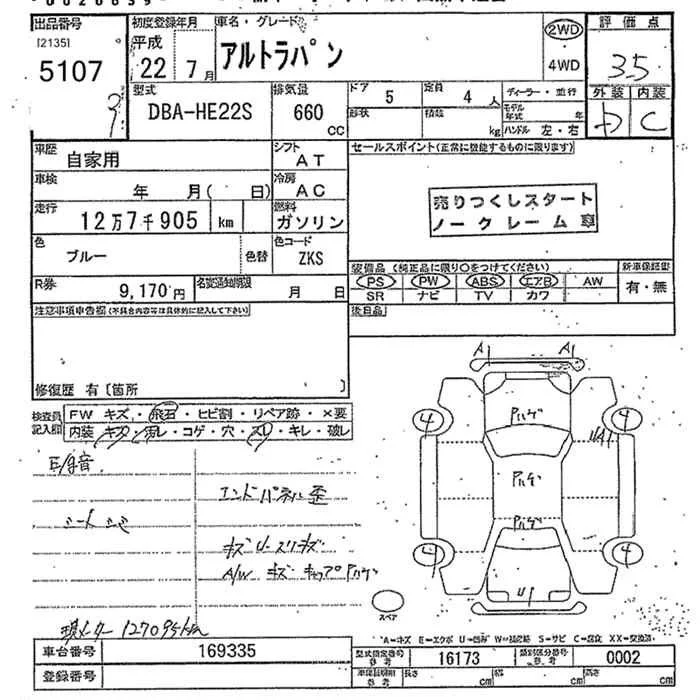 出品番号
[2135]
5107
初度登録年月
平成
22 年 7 月
車名・グレード
アルトラパン
2WD
4WD
評価点
3.5
外装 内装
D C
型式
DBA-HE22S
排気量
660 CC
ドア 5
定員 4 人
形状
積載 kg
ディーラー・並行
モデル年式 年
ハンドル 左・右
車歴
自家用
シフト
AT
車検
年 月( 日)
冷房
AC
走行
12万7千905 km
燃料
ガソリン
色
ブルー
色替
色コード
ZKS
セールスポイント(正常に機能するものに限ります)
売りつくしスタート
ノークレーム車
装備品 (純正品に限り○をつけてください)
新車保証書
PS PW ABS エアB AW
SR ナビ TV カワ
有・無
R券
9,170円
名変通知期限
月 日
後日品
注意事項申告欄(不具合内容等は具体的に記入して下さい)
修復歴 有〔箇所 〕
検査員記入欄
FW キズ・飛石・ヒビ割・リペア跡・×要
内装 キズ・汚レ・コゲ・穴・スレ・キレ・破レ
シートシミ
エンドパネル歪
キズUースリキズ
A/W キズ キャップハゲ
現メーター127095km
A1 A1
ハゲ
ハゲ
ハゲ
4 4
4 4
UA1
U1
スペア
A=キズ E=エクボ U=凹み W=補修跡 S=サビ C=腐食 XX=交換済
車台番号
169335
型式指定番号
参考
16173
類別区分番号
参考
0002
登録番号
車庫証明用
参考
長さ cm
幅 cm
高さ cm